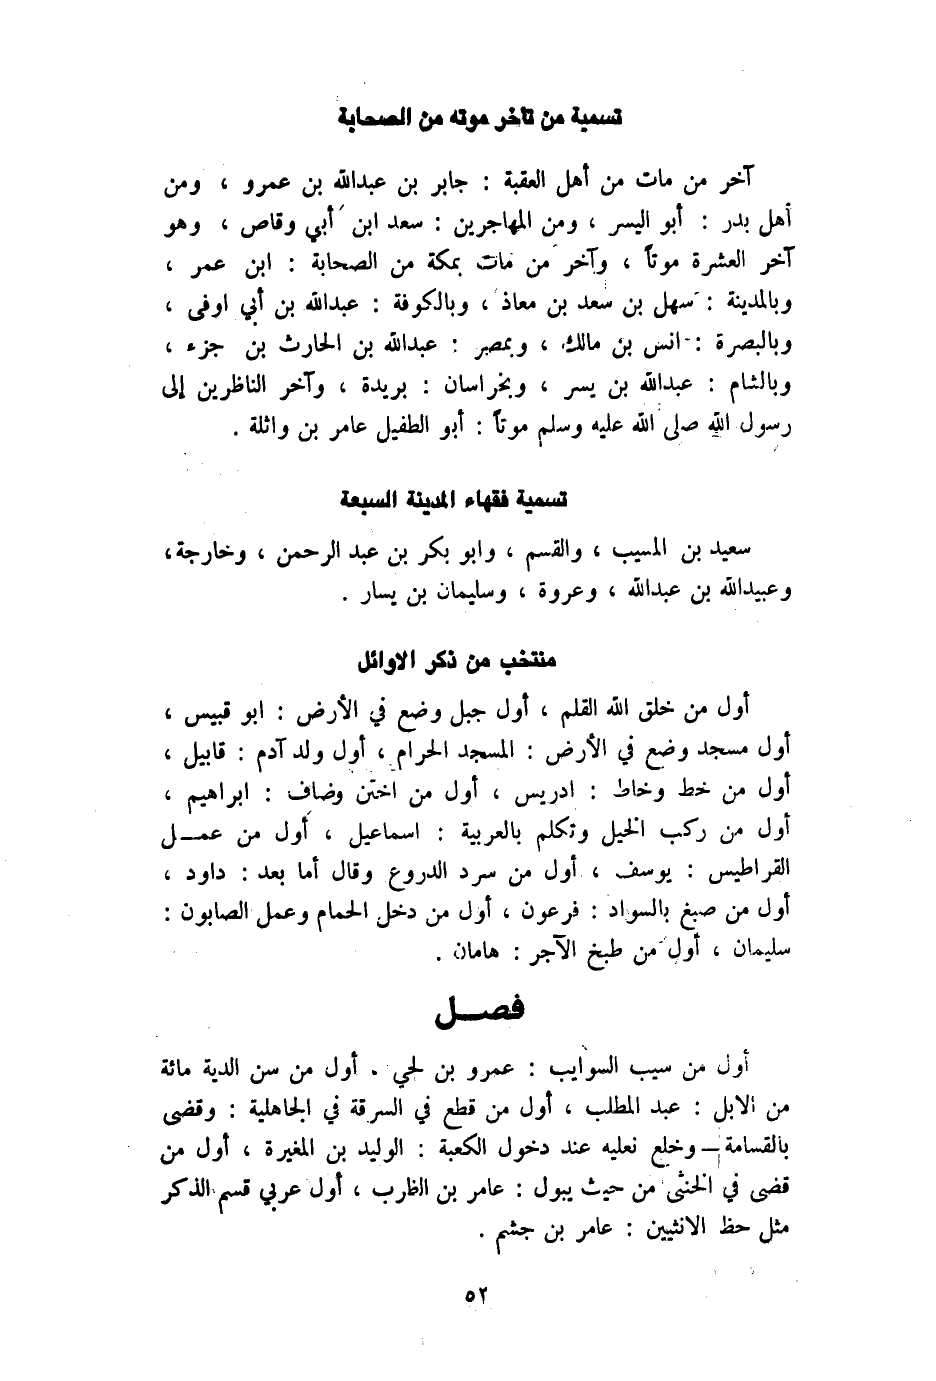 تسمية من تأخر موته من الصحابة
آخر من مات من أهل العقبة : جابر بن عبدالله بن عمرو ، ومن
أهل بدر : أبو اليسر ، ومن المهاجرين : سعد ابن أبي وقاص ، وهو
آخر العشرة موتاً ، وآخر من مات بمكة من الصحابة : ابن عمر ،
وبالمدينة : سهل بن سعد بن معاذ ، وبالكوفة : عبدالله بن أبي اوفى ،
وبالبصرة : انس بن مالك ، وبمصر : عبدالله بن الحارث بن جزء ،
وبالشام : عبدالله بن يسر ، وبخراسان : بريدة ، وآخر الناظرين إلى
رسول الله صلى الله عليه وسلم موتاً : أبو الطفيل عامر بن واثلة .
تسمية فقهاء المدينة السبعة
سعيد بن المسيب ، والقسم ، وابو بكر بن عبد الرحمن ، وخارجة ،
وعبيدالله بن عبدالله ، وعروة ، وسليمان بن يسار .
منتخب من ذكر الاوائل
أول من خلق الله القلم ، أول جبل وضع في الأرض : ابو قبيس ،
أول مسجد وضع في الأرض : المسجد الحرام ، أول ولد آدم : قابيل ،
أول من خط وخاط : ادريس ، أول من اختن وضاف : ابراهيم ،
أول من ركب الخيل وتكلم بالعربية : اسماعيل ، أول من عمــل
القراطيس : يوسف ، أول من سرد الدروع وقال أما بعد : داود ،
أول من صبغ بالسواد : فرعون ، أول من دخل الحمام وعمل الصابون :
سليمان ، أول من طبخ الآجر : هامان .
فصــل
أول من سيب السوايب : عمرو بن لحي . أول من سن الدية مائة
من الابل : عبد المطلب ، أول من قطع في السرقة في الجاهلية : وقضى
بالقسامة – وخلع نعليه عند دخول الكعبة : الوليد بن المغيرة ، أول من
قضى في الخنثى من حيث يبول : عامر بن الظارب ، أول عربي قسم الذكر
مثل حظ الانثيين : عامر بن جشم .
٥٢